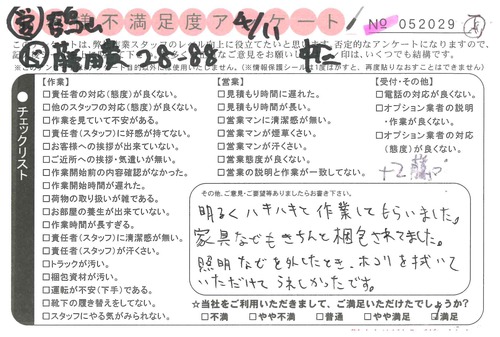 不満足度アンケート
No 052029
4/11
28-88
このアンケートは、弊社作業スタッフのレベル向上に役立てたいと思います。否定的なアンケートになりますので、
印は、いくつでも結構です。
【作業】
□責任者の対応(態度)が良くない。
□他のスタッフの対応(態度)が良くない。
□作業を見ていて不安がある。
□責任者(スタッフ)に好感が持てない。
□お客様への挨拶が出来ていない。
□ご近所への挨拶・気遣いが無い。
□作業開始前の内容確認がなかった。
□作業開始時間が遅れた。
□荷物の取り扱いが雑である。
□お部屋の養生が出来ていない。
□作業時間が長すぎる。
□責任者(スタッフ)に清潔感が無い。
□責任者(スタッフ)が汗くさい。
□トラックが汚い。
□梱包資材が汚い。
□運転が不安(下手)である。
□靴下の履き替えをしてない。
□スタッフにやる気がみられない。
【営業】
□見積もり時間に遅れた。
□見積もり時間が長い。
□営業マンに清潔感が無い。
□営業マンが煙草くさい。
□営業マンが汗くさい。
□営業態度が良くない。
□営業の説明と作業が一致してない。
【受付・その他】
□電話の対応が良くない。
□オプション業者の説明
・作業が良くない。
□オプション業者の対応
(態度)が良くない。
チェックリスト
その他、ご意見・ご要望等ありましたらお書き下さい。
明るくハキハキと作業してもらいました。
家具などもきちんと梱包されてました。
照明などを外したとき、ホコリを拭いて
いただけてうれしかったです。
☆当社をご利用いただきまして、ご満足いただけたでしょうか?
□不満 □やや不満 □普通 □やや満足 □満足